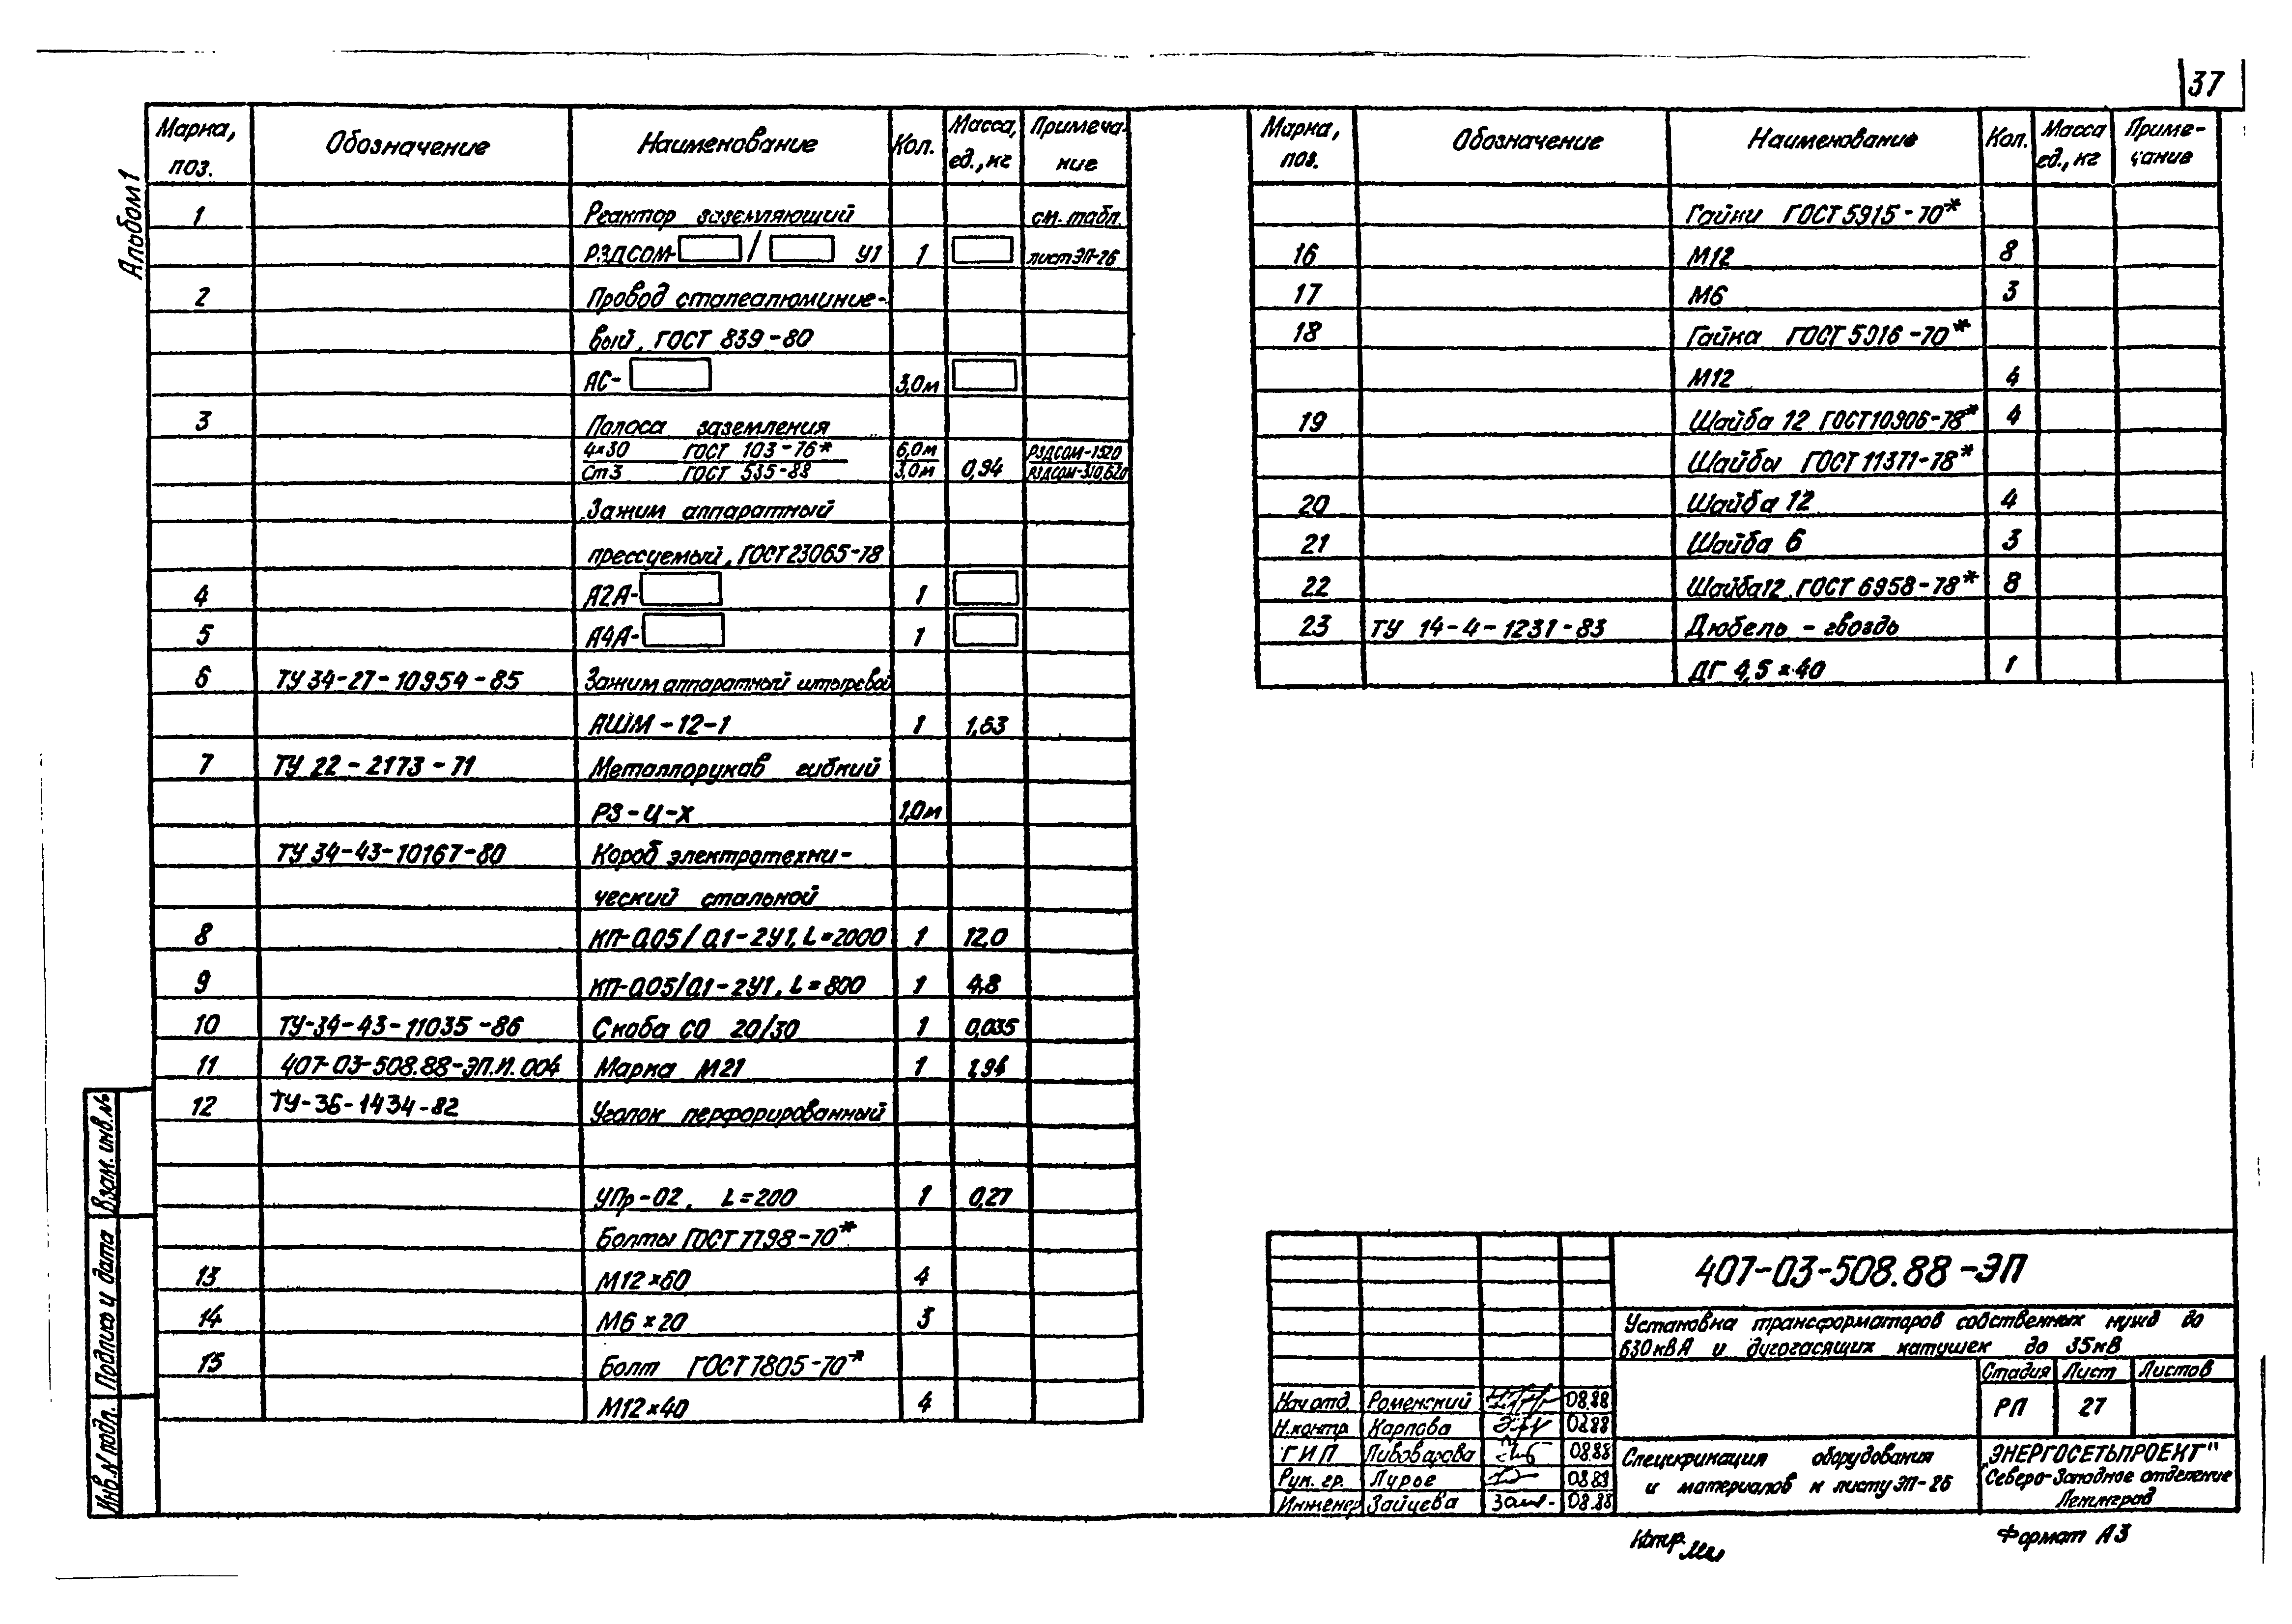 37
Альбом 1
Марка, поз. Обозначение Наименование Кол. Масса, ед., кг Примечание
1 Реактор заземляющий см. табл.
РЗДСОМ- / У1 1 лист ЭП-26
2 Провод сталеалюминие-
вый, ГОСТ 839-80
АС- 3,0м
3 Полоса заземления
4×30 ГОСТ 103-76* 6,0м РЗДСОМ-1520
Ст3 ГОСТ 535-88 3,0м 0,94 РЗДСОМ-310,620
Зажим аппаратный
прессуемый, ГОСТ 23065-78
4 А2А- 1
5 А4А- 1
6 ТУ 34-27-10954-85 Зажим аппаратный штыревой
АШМ-12-1 1 1,63
7 ТУ 22-2173-71 Металлорукав гибкий
РЗ-Ц-Х 1,0м
ТУ 34-43-10167-80 Короб электротехни-
ческий стальной
8 КП-0,05/0,1-2У1, L=2000 1 12,0
9 КП-0,05/0,1-2У1, L=800 1 4,8
10 ТУ-34-43-11035-86 Скоба СО 20/30 1 0,035
11 407-03-508.88-ЭП.И.004 Марка М21 1 1,94
12 ТУ-36-1434-82 Уголок перфорированный
УПр-02, L=200 1 0,27
Болты ГОСТ 7798-70*
13 М12×60 4
14 М6×20 3
15 Болт ГОСТ 7805-70*
М12×40 4
Марка, поз. Обозначение Наименование Кол. Масса ед., кг Приме-чание
Гайки ГОСТ 5915-70*
16 М12 8
17 М6 3
18 Гайка ГОСТ 5916-70*
М12 4
19 Шайба 12 ГОСТ 10906-78* 4
Шайбы ГОСТ 11371-78*
20 Шайба 12 4
21 Шайба 6 3
22 Шайба 12 ГОСТ 6958-78* 8
23 ТУ 14-4-1231-83 Дюбель-гвоздь
ДГ 4,5×40 1
Взам. инв. №
Подпись и дата
Инв. № подл.
407-03-508.88-ЭП
Установка трансформаторов собственных нужд до
630кВА и дугогасящих катушек до 35кВ
Стадия Лист Листов
РП 27
Нач отд Роменский 08.88
Н.контр Карпова 08.88
ГИП Пивоварова 08.88
Рук. гр. Лурье 08.88
Инженер Зайцева 08.88
Спецификация оборудования
и материалов к листу ЭП-26
"ЭНЕРГОСЕТЬПРОЕКТ"
Северо-Западное отделение
Ленинград
Копир.
Формат А3